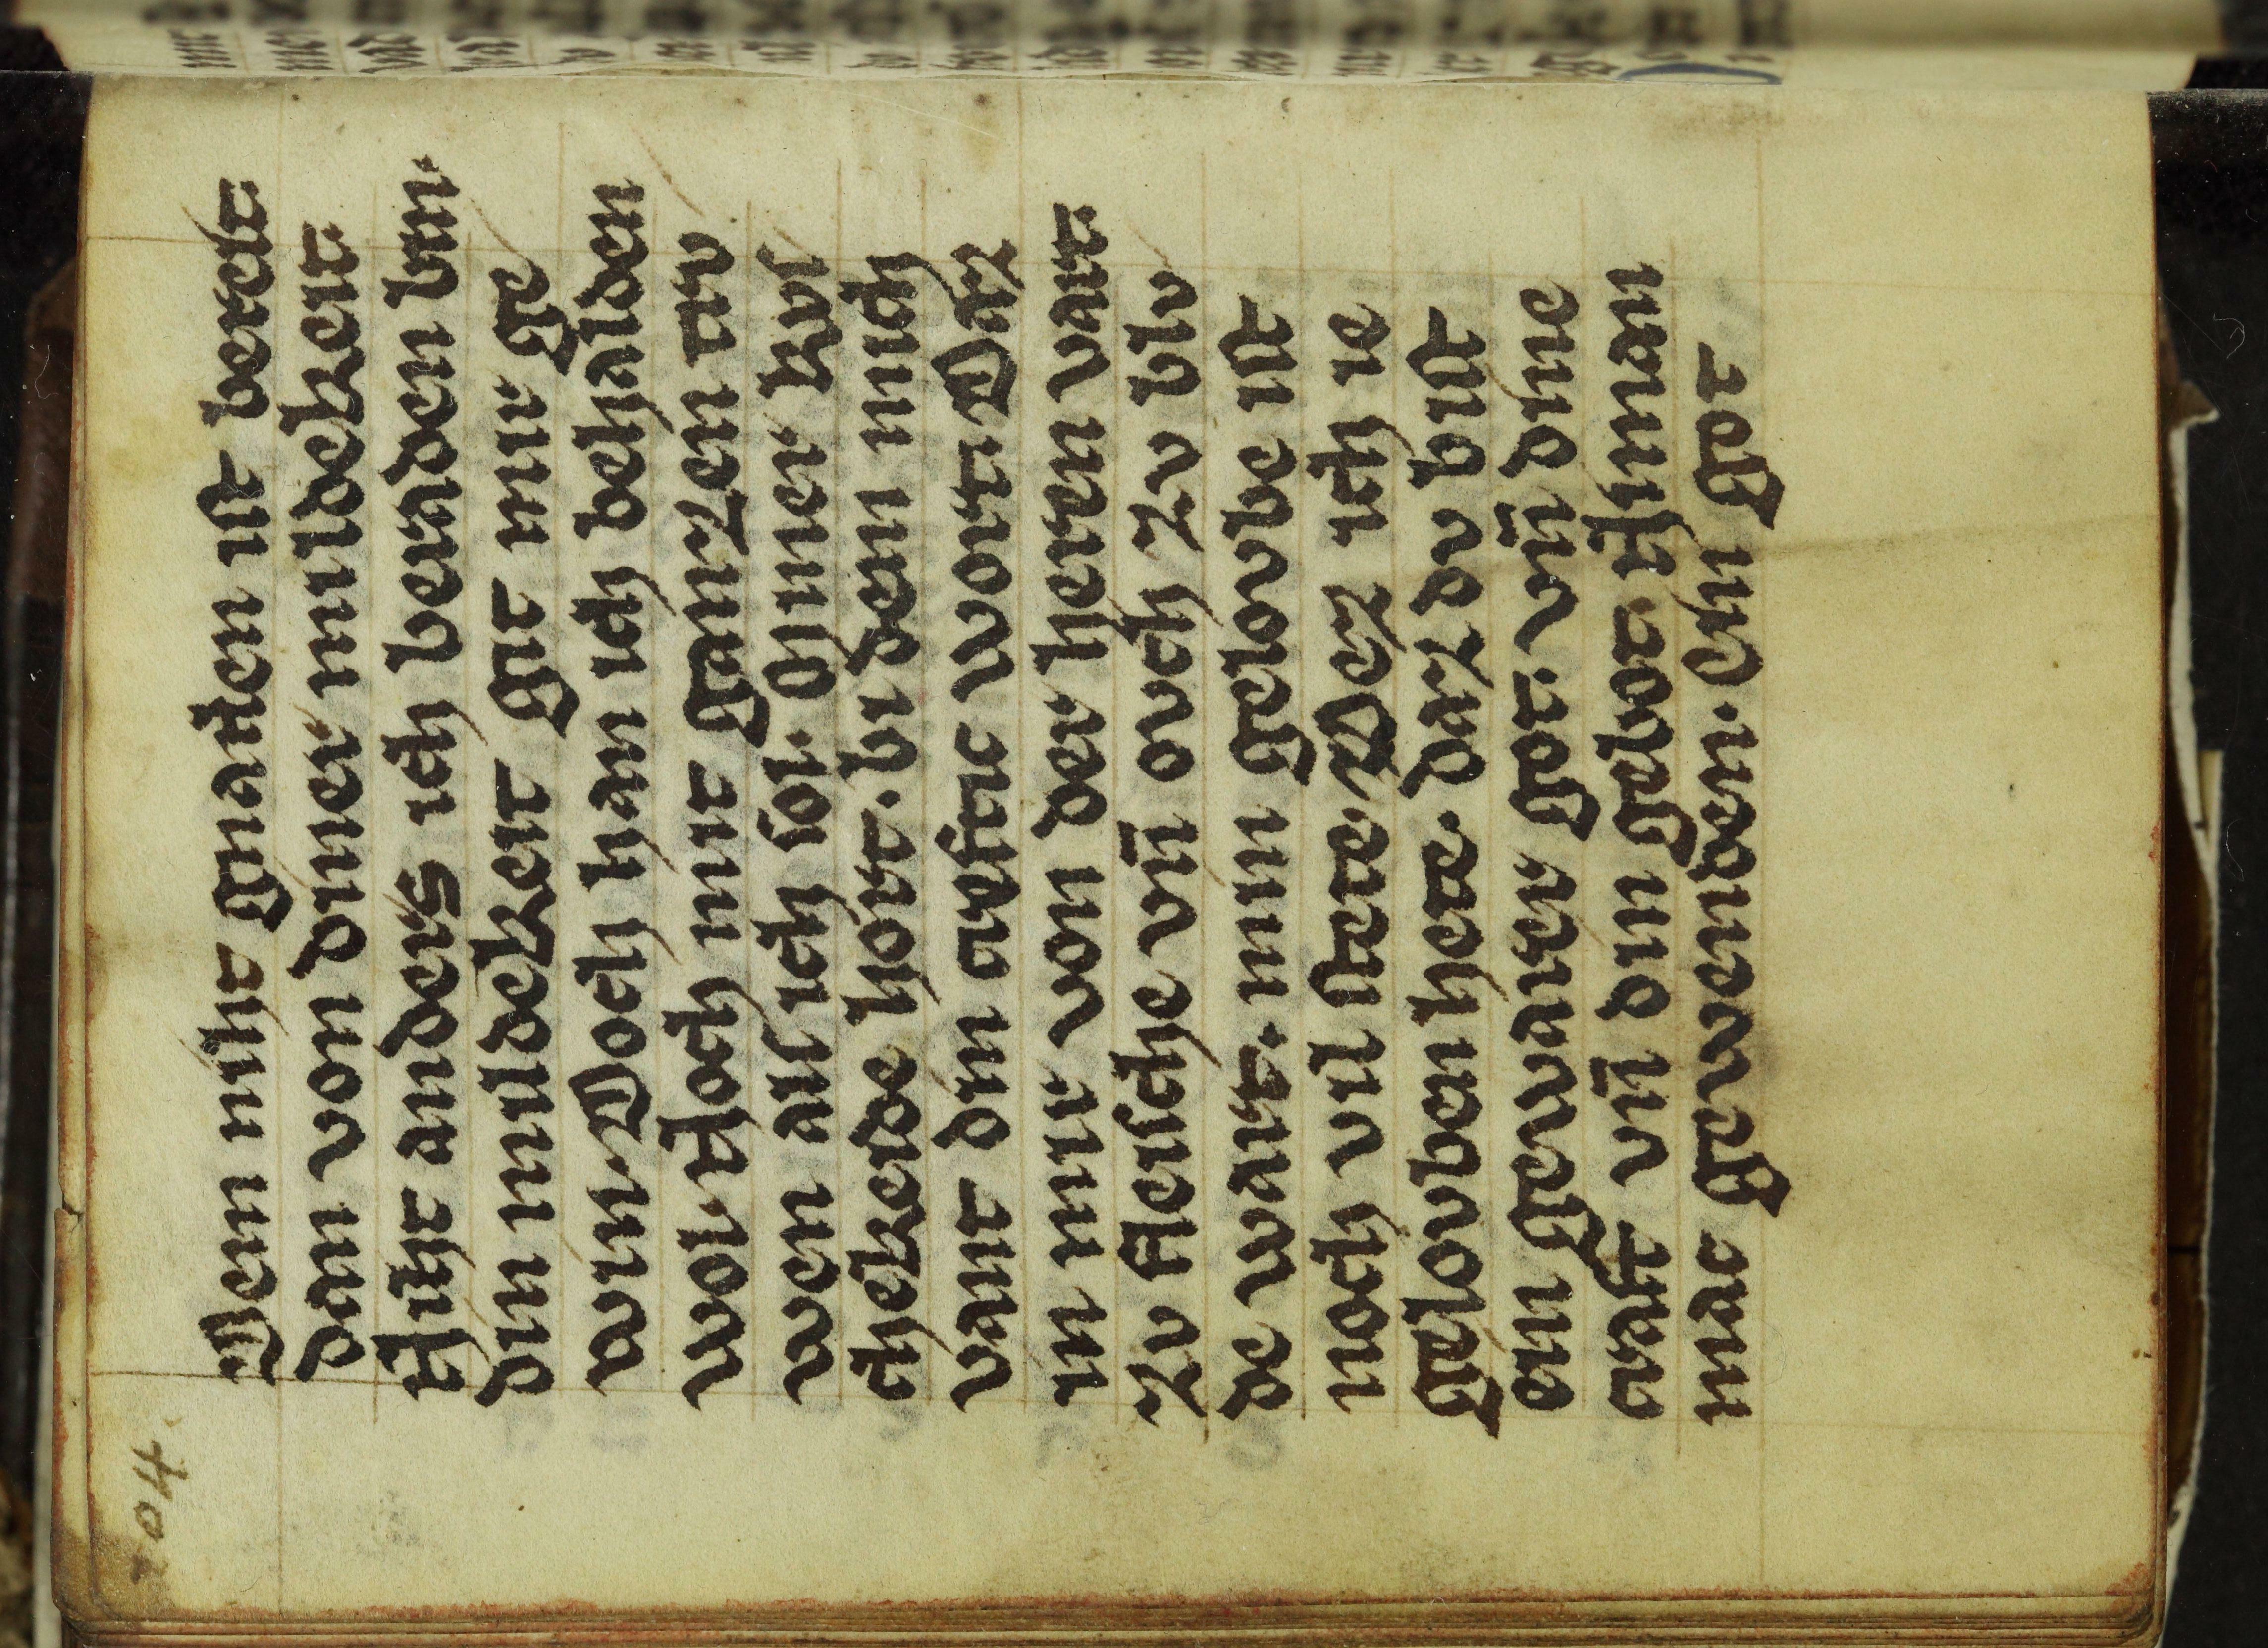 204
Dem niht gnaden ist bereit.
dan von diner mildekeit.
Niht anders ich beraden bin.
din mildekeit git mir ge
win. Doch han ich behalden
wol. Noch mit ganzen tru
wen als ich sol. Einer kus
chekeide hort. bi dem mich
vant din creftic wort. Daz
in mir von der heren vart.
zu fleische vñ ouch zu blu
de wart. min gelovbe ist
noch vil stete. Dez ich ie
geloven here. daz du bist
ein gewarer got. vñ dine
craft vñ din gebot. Niman
mac gewenden. Ein got